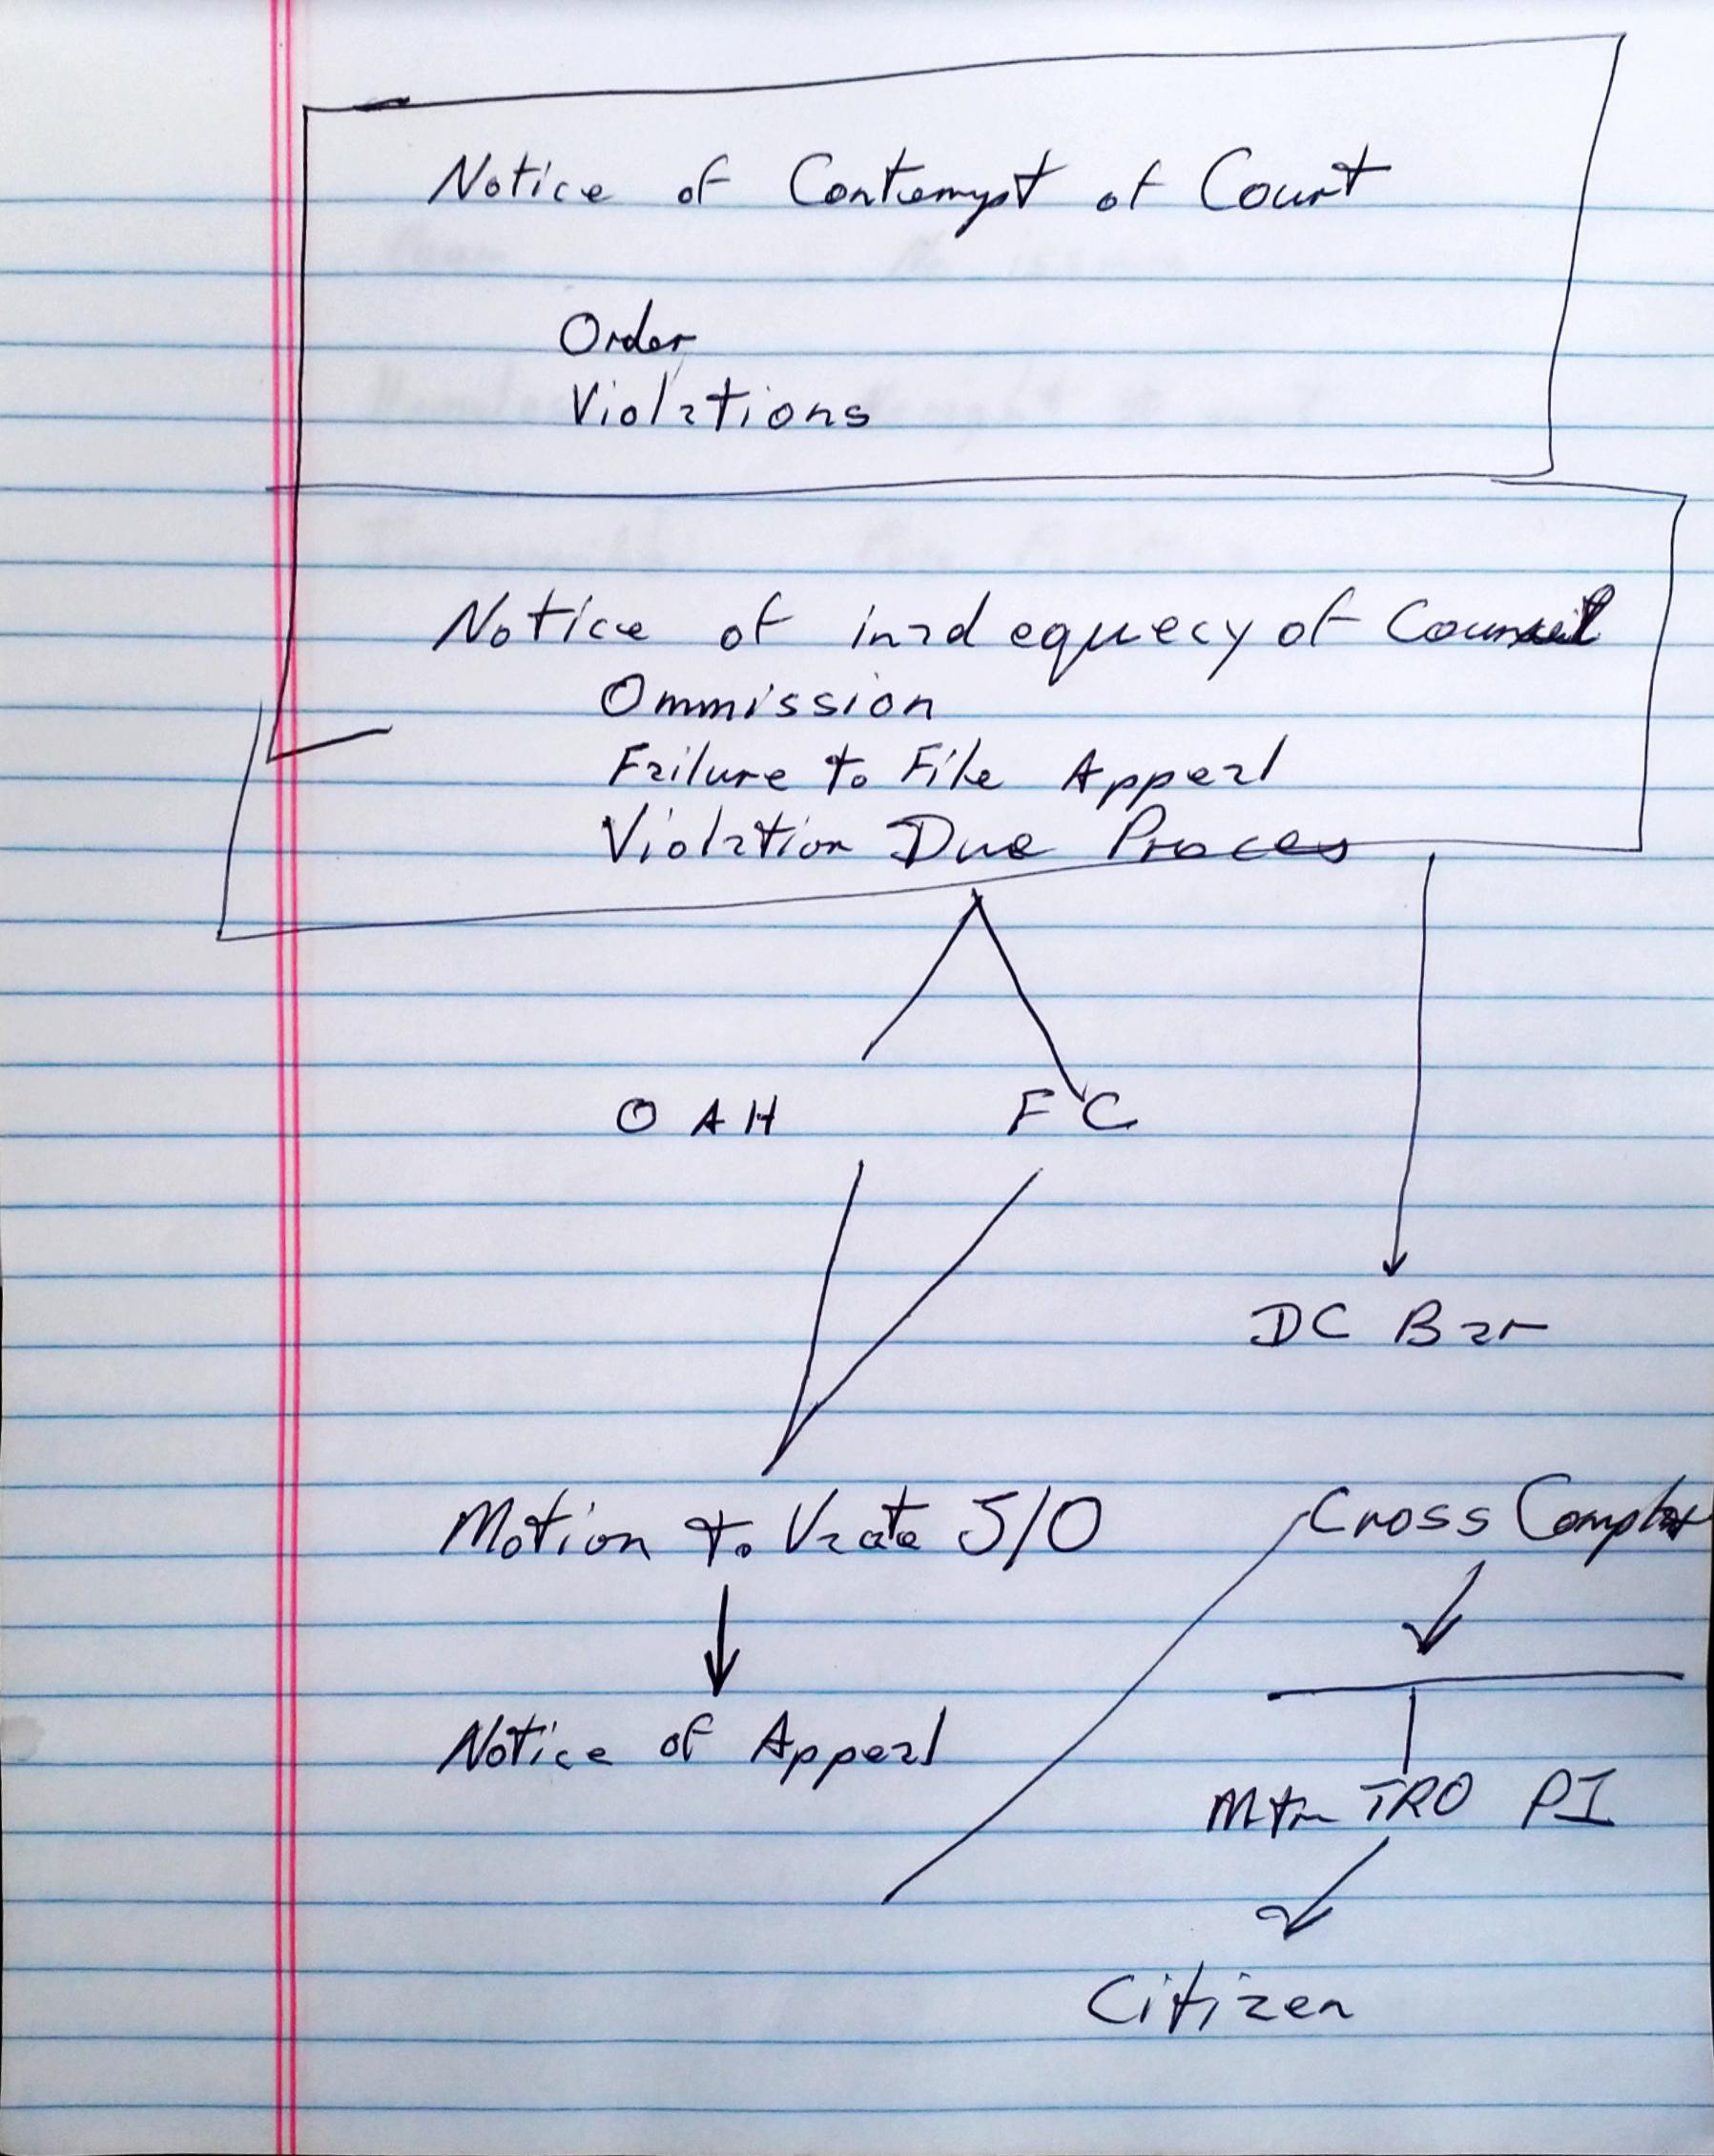 Notice of Contempt of Court
Order
Violations
Notice of inadequecy of Counsel
Ommission
Failure to File Appeal
Violation Due Proces
OAH FC
DC Bar
Motion to Vacate S/O
Cross
Notice of Appeal
Mtn TRO PI
Citizen